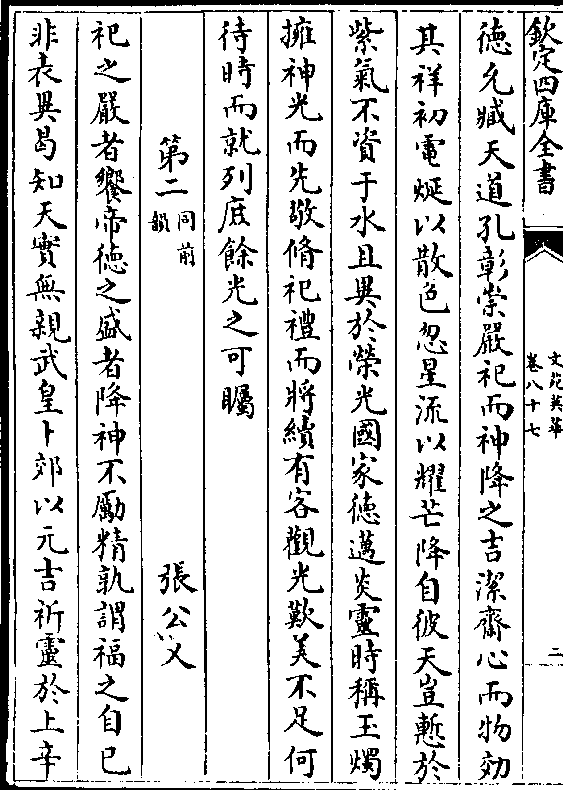 欽定四庫全書
文苑英華
卷八十七
二
德允臧天道孔彰崇嚴祀而神降之吉潔齋心而物効
其祥初電烻以散色忽星流以耀芒降自彼天豈慙於
紫氣不資于水且異於榮光國家德邁炎靈時稱玉燭
擁神光而先敬脩祀禮而將續有客觀光歎美不足何
待時而就列庶餘光之可矚
第二同前韻
張公乂
祀之嚴者饗帝德之盛者降神不勵精孰謂福之自已
非表異曷知天實無親武皇卜郊以元吉祈靈於上辛